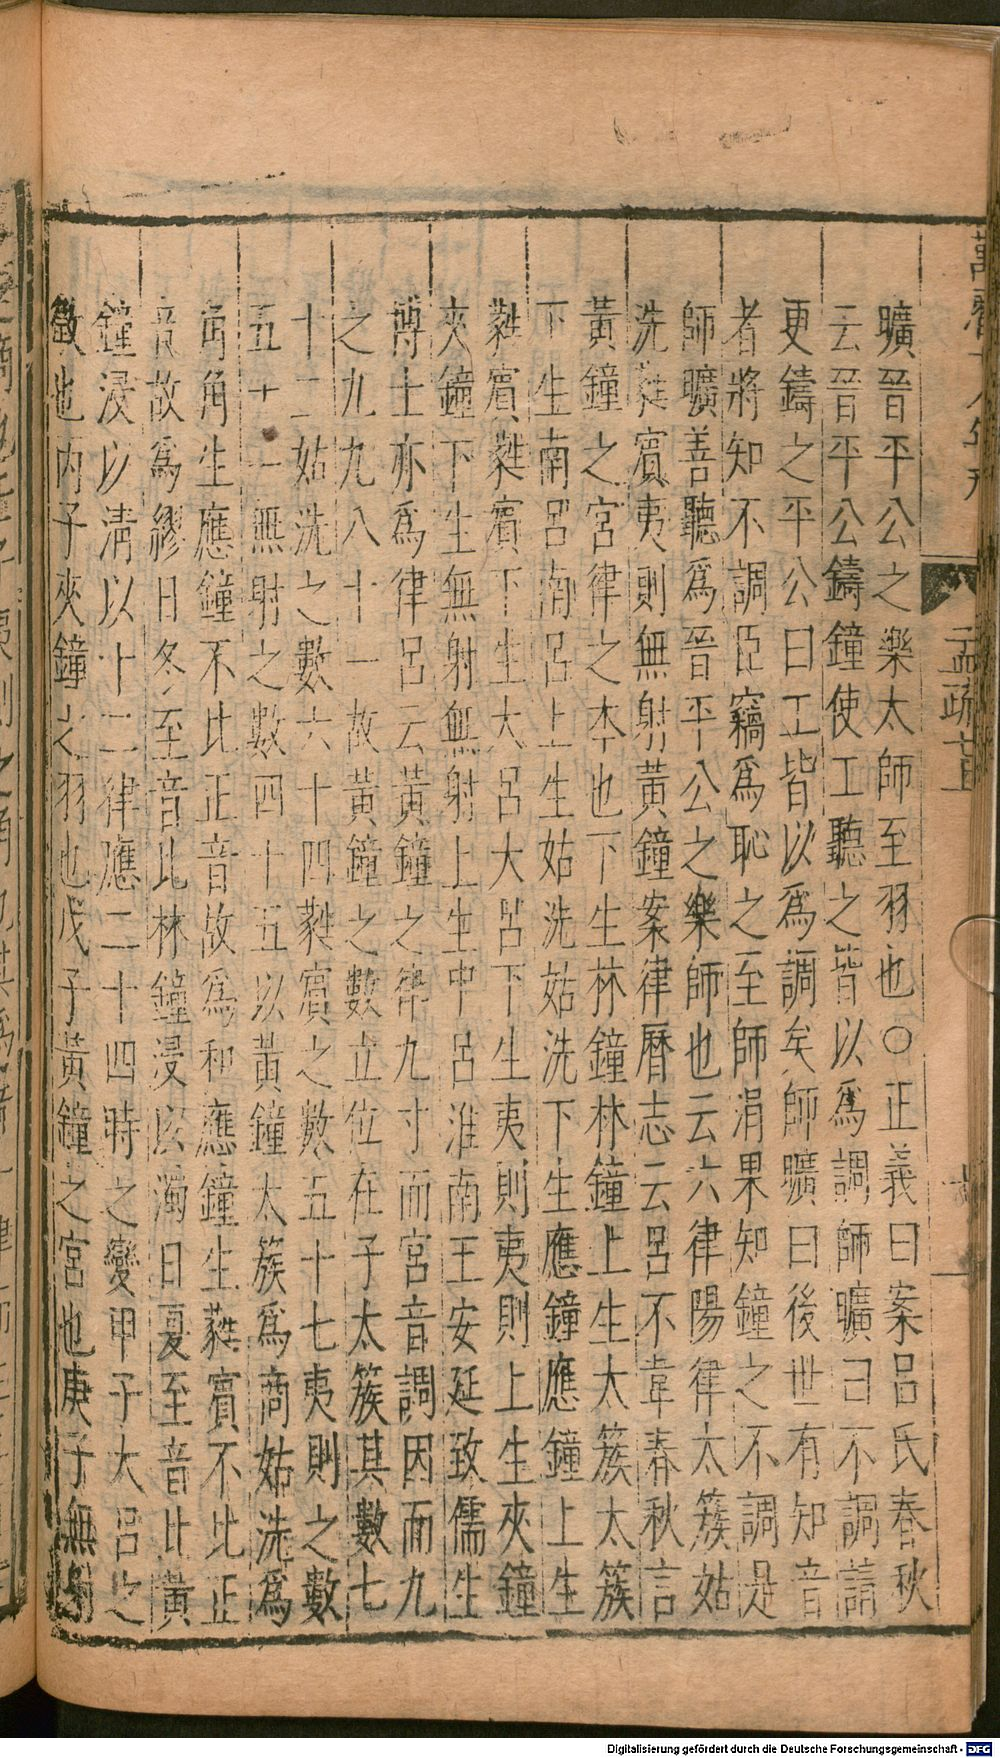 曠晉平公之樂太師至羽也〇正義曰案呂氏春秋
云晉平公鑄鐘使工聽之皆以爲調師曠曰不調請
更鑄之平公曰工皆以爲調矣師曠曰後世有知音
者將知不調臣竊爲恥之至師涓果知鐘之不調是
師曠善聽爲晉平公之樂師也云六律陽律太簇姑
洗蕤賓夷則無射黃鐘案律曆志云呂不韋春秋言
黃鐘之宮律之本也下生林鐘林鐘上生太簇太簇
下生南呂南呂上生姑洗姑洗下生應鐘應鐘上生
蕤賓蕤賓下生大呂大呂下生夷則夷則上生夾鐘
夾鐘下生無射無射上生中呂淮南王安延致儒生
博士亦爲律呂云黃鐘之律九寸而宮音調因而九
之九九八十一故黃鐘之數立位在子太簇其數七
十二姑洗之數六十四蕤賓之數五十七夷則之數
五十一無射之數四十五以黃鐘太簇爲商姑洗爲
角角生應鐘不比正音故爲和應鐘生蕤賓不比正
音故爲繆日冬至音比林鐘浸以濁日夏至音比黃
鐘浸以清以十二律應二十四時之變甲子大呂之
徵也丙子夾鐘之羽也戊子黃鐘之宮也庚子無射
孟疏